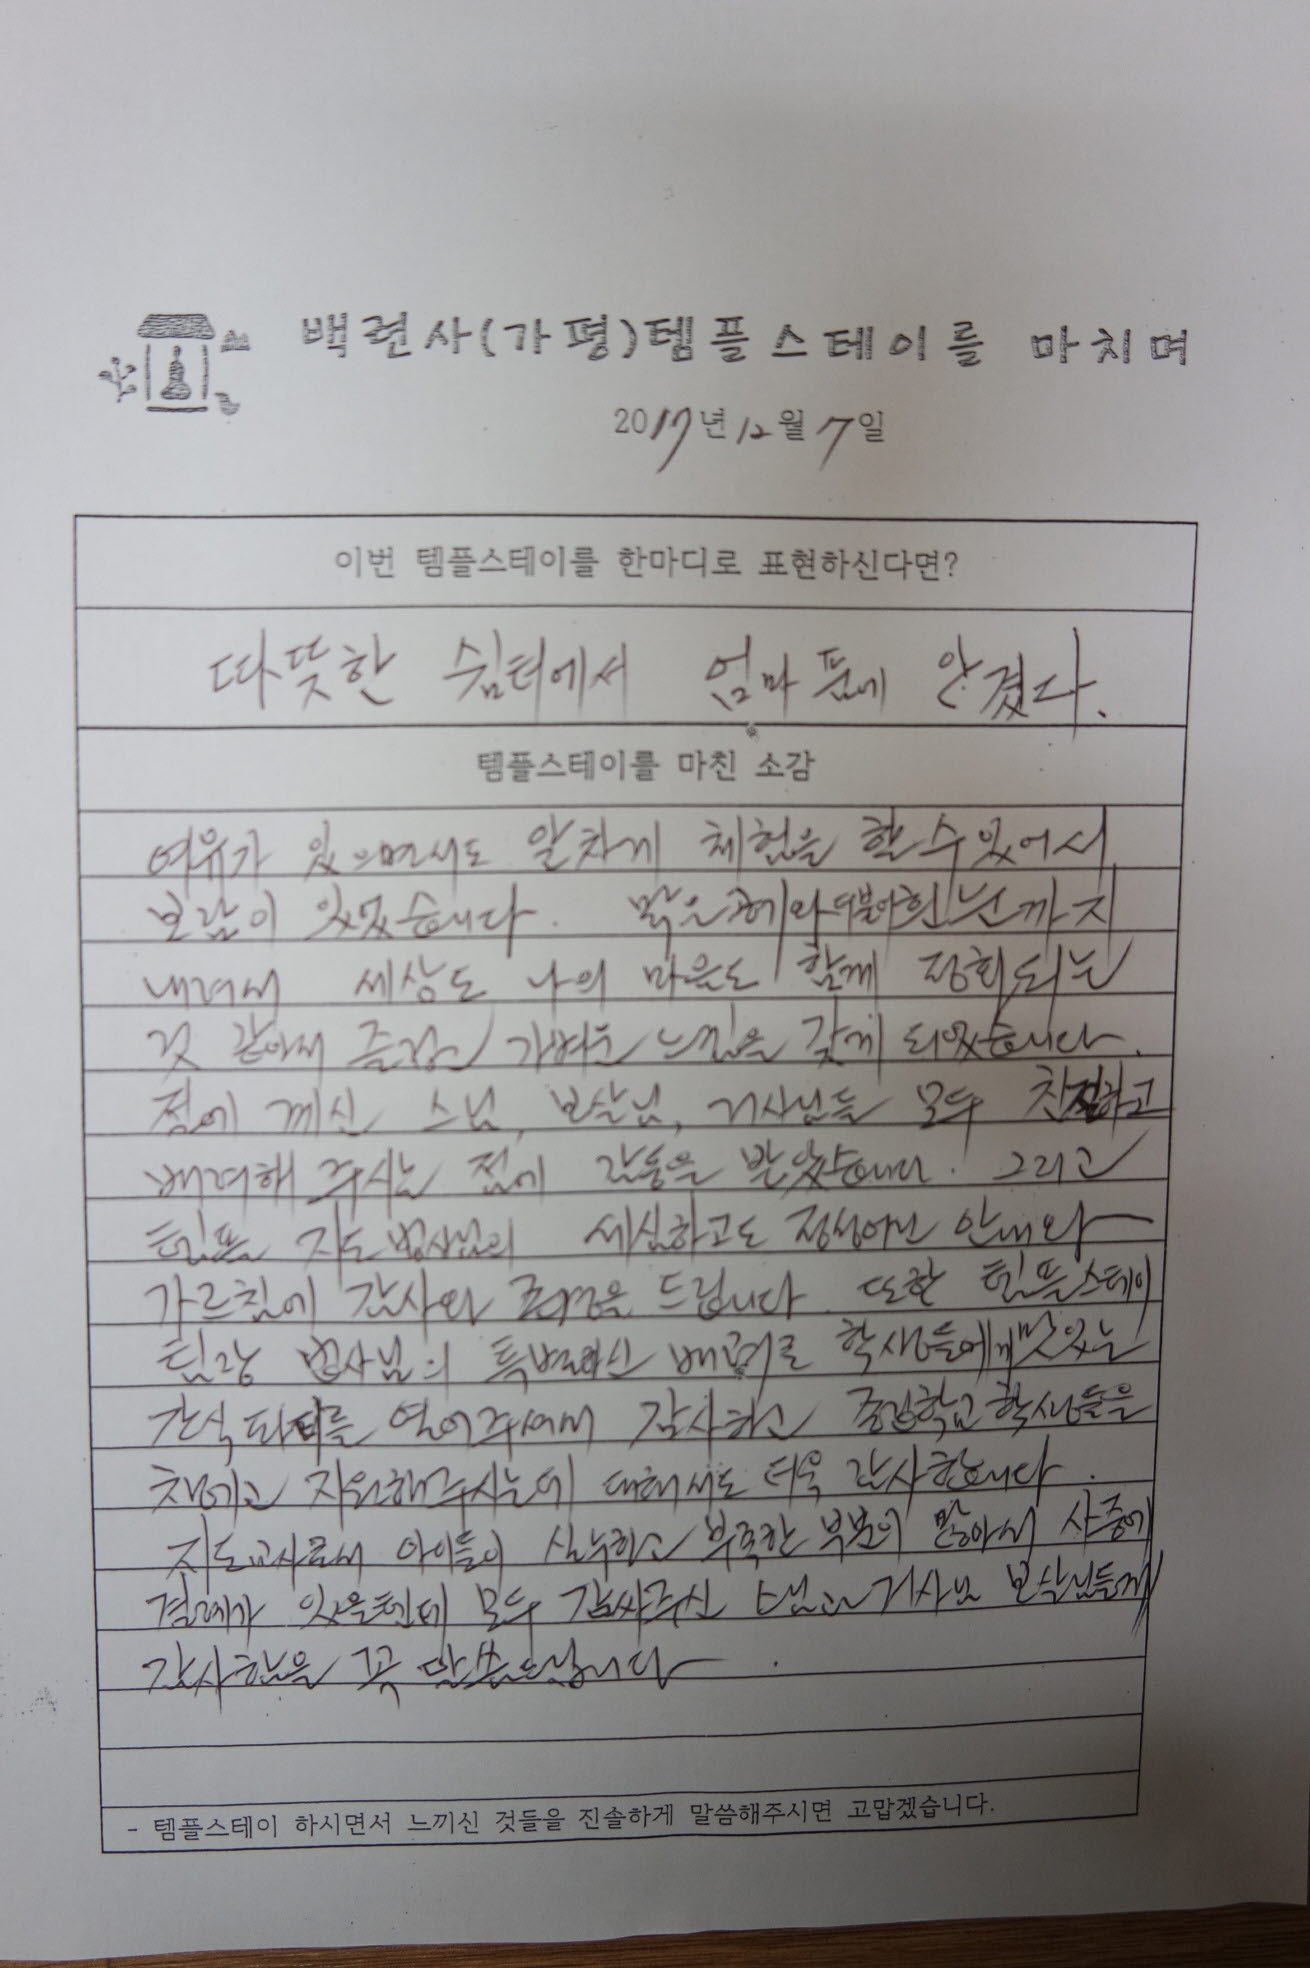 백련사(가평)템플스테이를 마치며
2017년 12월 7일
이번 템플스테이를 한마디로 표현하신다면?
따뜻한 쉼터에서 엄마 품에 안겼다.
템플스테이를 마친 소감
여유가 있으면서도 알차게 체험을 할 수 있어서
보람이 있었습니다. 맑은 공기와 더불어 흰 눈까지
내려서 세상도 나의 마음도 함께 정화되는
것 같아서 즐겁고 가벼운 느낌을 갖게 되었습니다.
절에 계신 스님, 보살님, 거사님들 모두 친절하고
배려해 주시는 점에 감동을 받았습니다. 그리고
템플 지도 법사님의 세심하고도 정성어린 안내와
가르침에 감사와 존경을 드립니다. 또한 템플스테이
팀장 법사님의 특별하신 배려로 학생들에게 맛있는
간식 파티를 열어주셔서 감사하고 학교 학생들을
챙기고 지원해주시는데 대해서도 더욱 감사합니다.
지도교사로서 아이들이 실수하고 부족한 부분이 많아서 사중에
결례가 있을텐데 모두 감싸주신 스님과 거사님 보살님들께
감사함을 꼭 말씀드립니다.
- 템플스테이 하시면서 느끼신 것들을 진솔하게 말씀해주시면 고맙겠습니다.